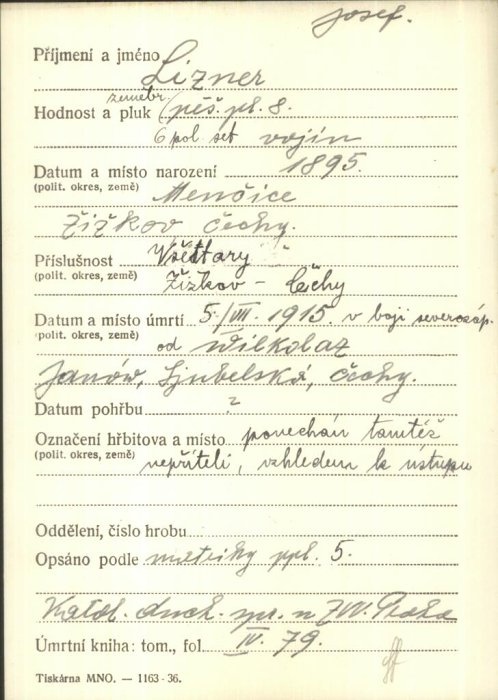 Josef.
Příjmení a jméno Lizner
zeměbr.
Hodnost a pluk pěš. pl. 8.
6 pol. set vojín
Datum a místo narození 1895.
(polit. okres, země) Menčice
Žižkov Čechy.
Příslušnost Všettary
(polit. okres, země) Žižkov - Čechy
Datum a místo úmrtí 5/VII. 1915. v boji severozáp.
(polit. okres, země) od Wilkolaz
Janów, Ljubelská, Čechy.
Datum pohřbu ?
Označení hřbitova a místo ponechán tamtéž
(polit. okres, země) nepříteli, vzhledem k ústupu
Oddělení, číslo hrobu
Opsáno podle matriky ppl. 5.
Katol. duch. spr. u ZVV. Praha
Úmrtní kniha: tom., fol. IV. 79.
Tiskárna MNO. — 1163 - 36.